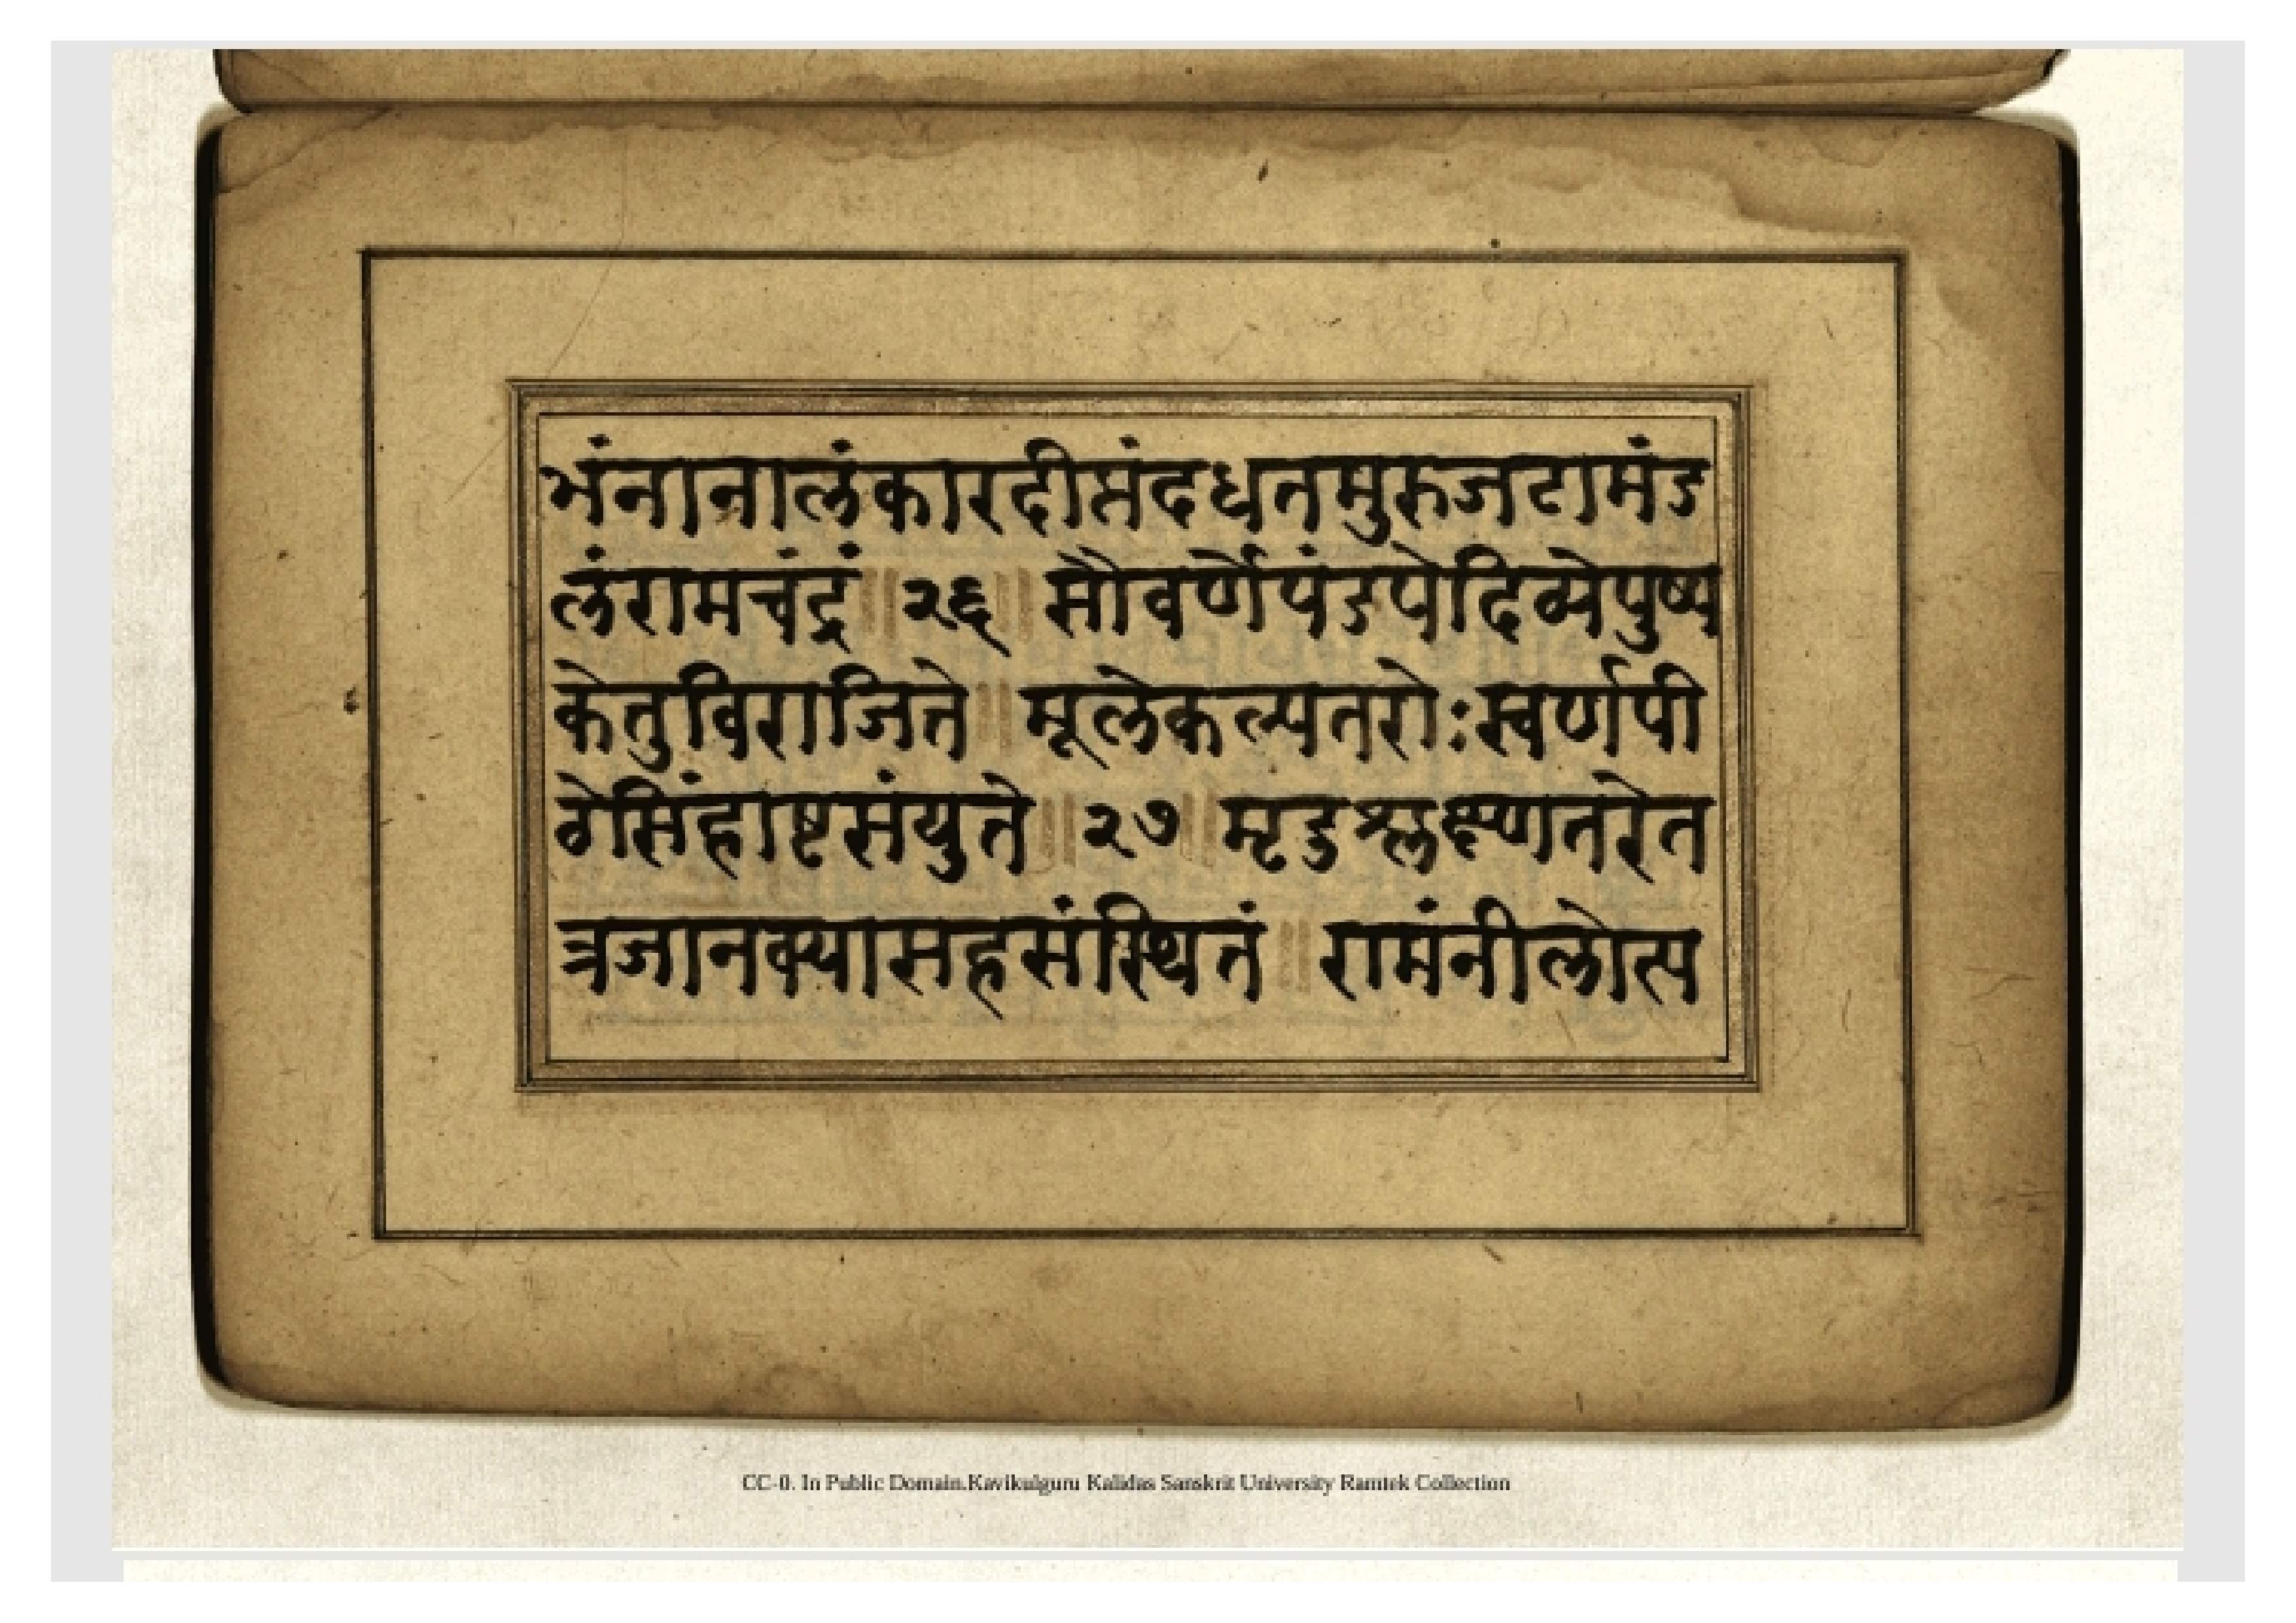 भंनानालंकारदीप्तंदधतमुरुजटामंड
लंरामचंद्रं ॥ २६ ॥ सौवर्णेपंडपेदिव्येपुष्प
केतुविराजिते ॥ मूलेकल्पतरोःस्वर्णपी
ठेसिंहाष्टसंयुते ॥ २७ ॥ मृदुश्लक्ष्णतरेत
त्रजानक्यासहसंस्थितं ॥ रामंनीलोत्प
CC-0. In Public Domain.Kavikulguru Kalidas Sanskrit University Ramtek Collection